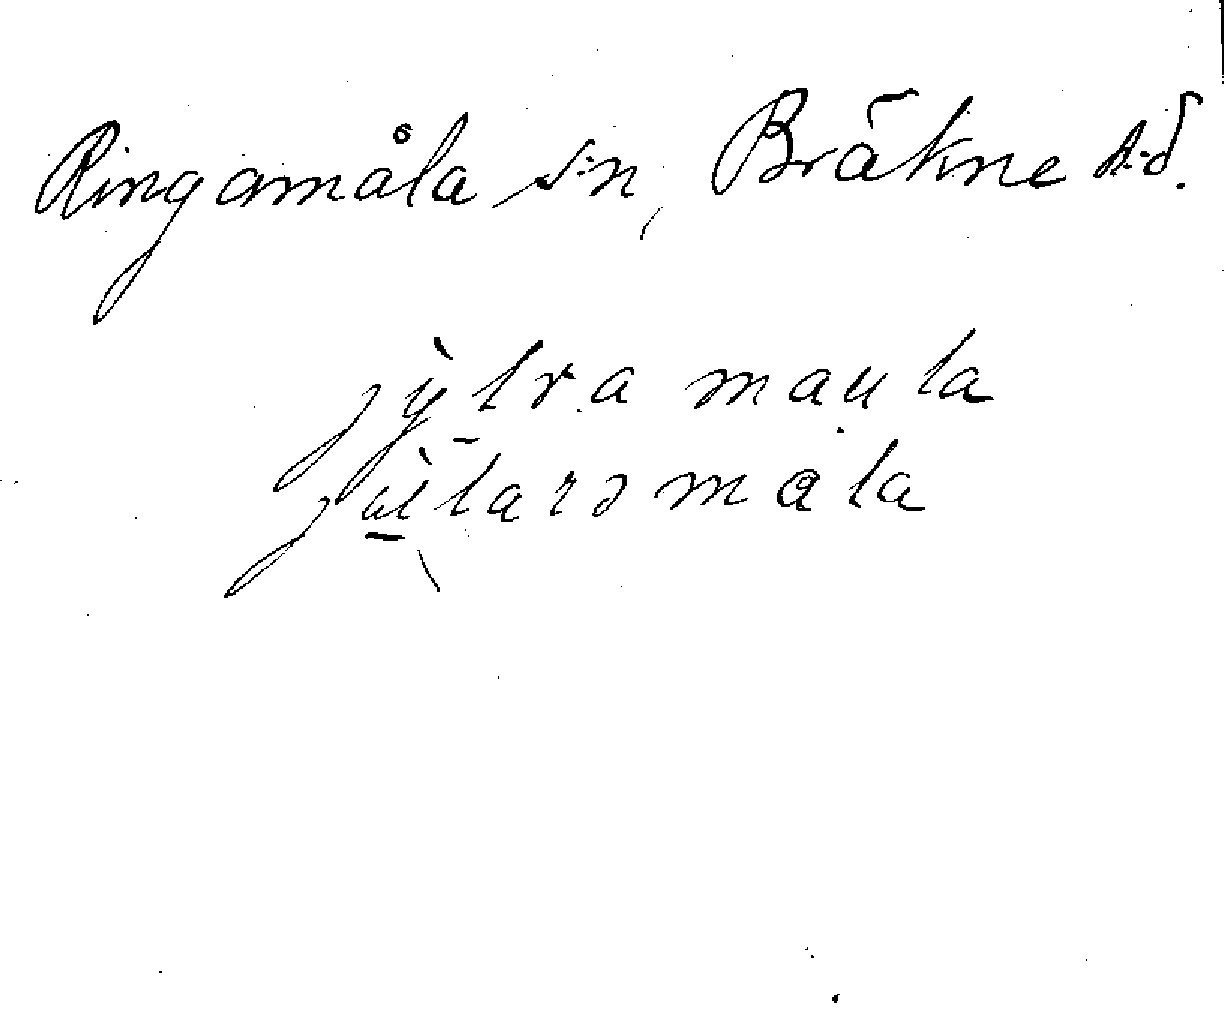 Ringamåla s:n, Bräkne h:d.
jỳtra maula
jùtarəmåla